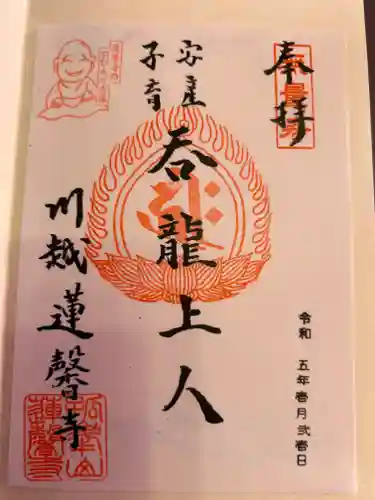 奉拝
安産
子育
呑龍上人
川越蓮馨寺
令和 五年壱月弐壱日